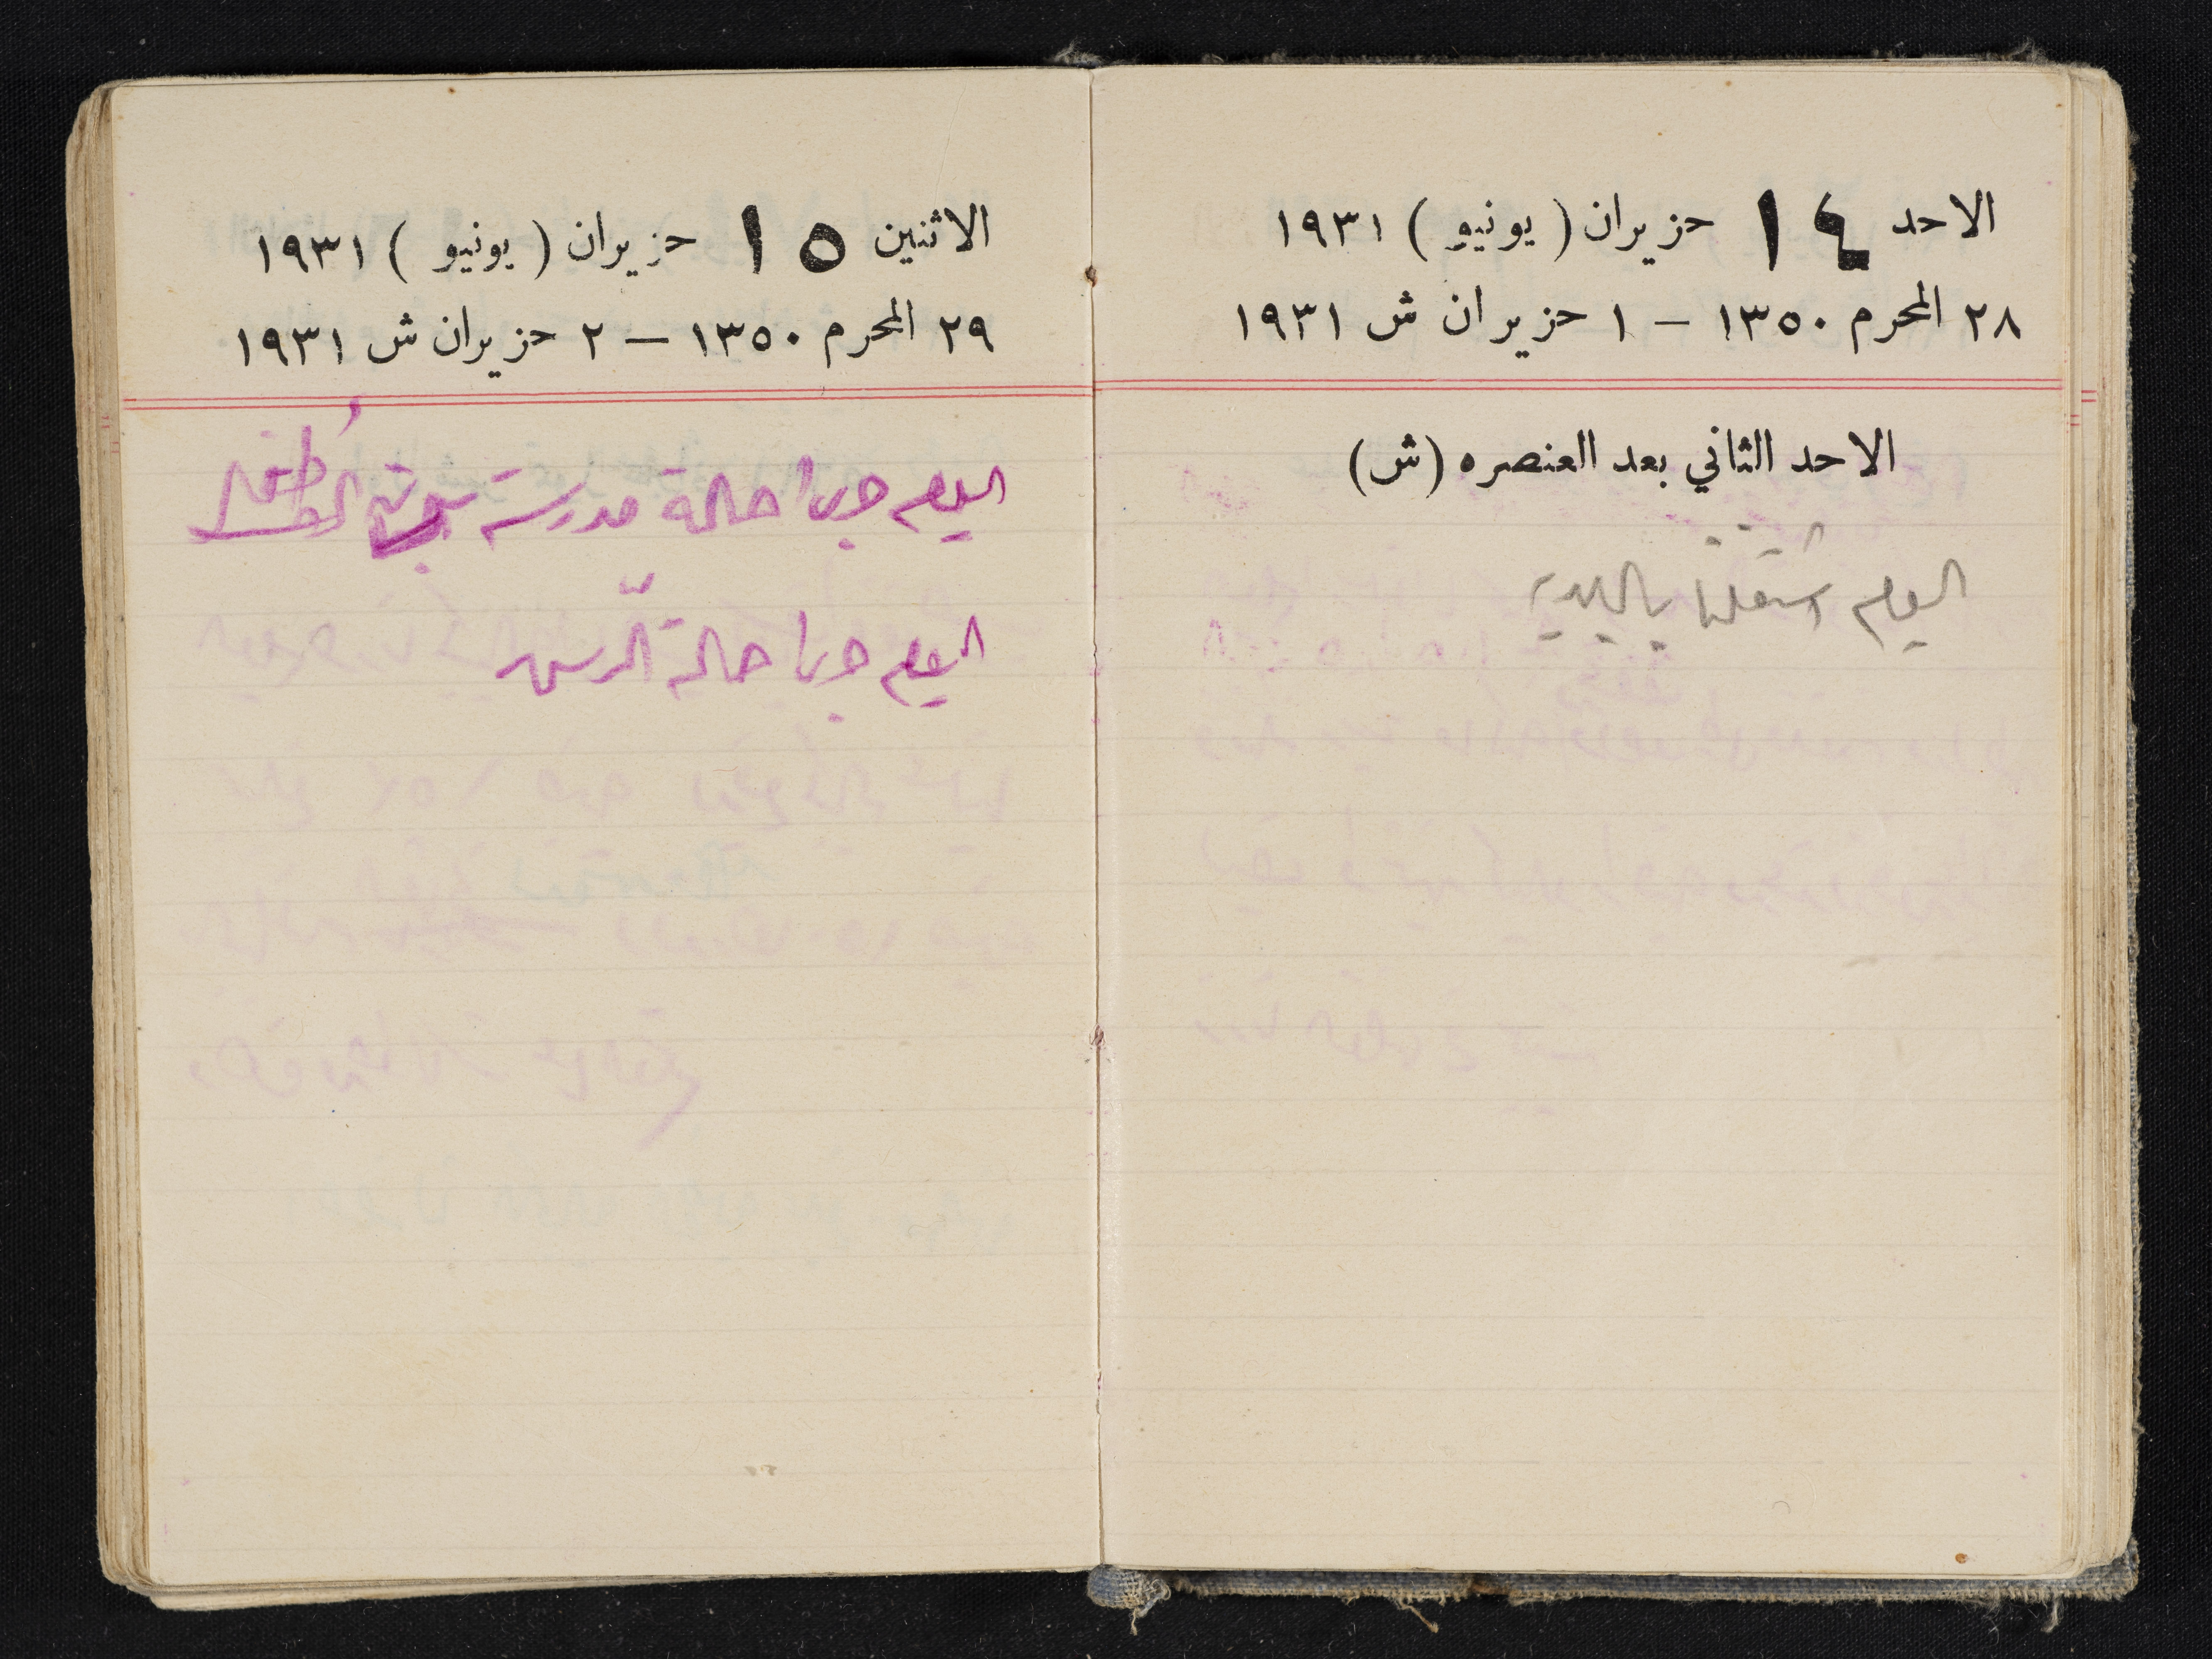 الاحد ١٤ حزيران ( يونيو ) ١٩٣١
٢٨ المحرم ١٣٥٠ — ١ حزيران ش ١٩٣١
الاحد الثاني بعد العنصره (ش)
اليوم اشتغلنا بالبلديه
الاثنين ١٥ حزيران ( يونيو ) ١٩٣١
٢٩ المحرم ١٣٥٠ — ٢ حزيران ش ١٩٣١
اليوم جبنا حالة مدرسة
اليوم جبنا حالة الرس